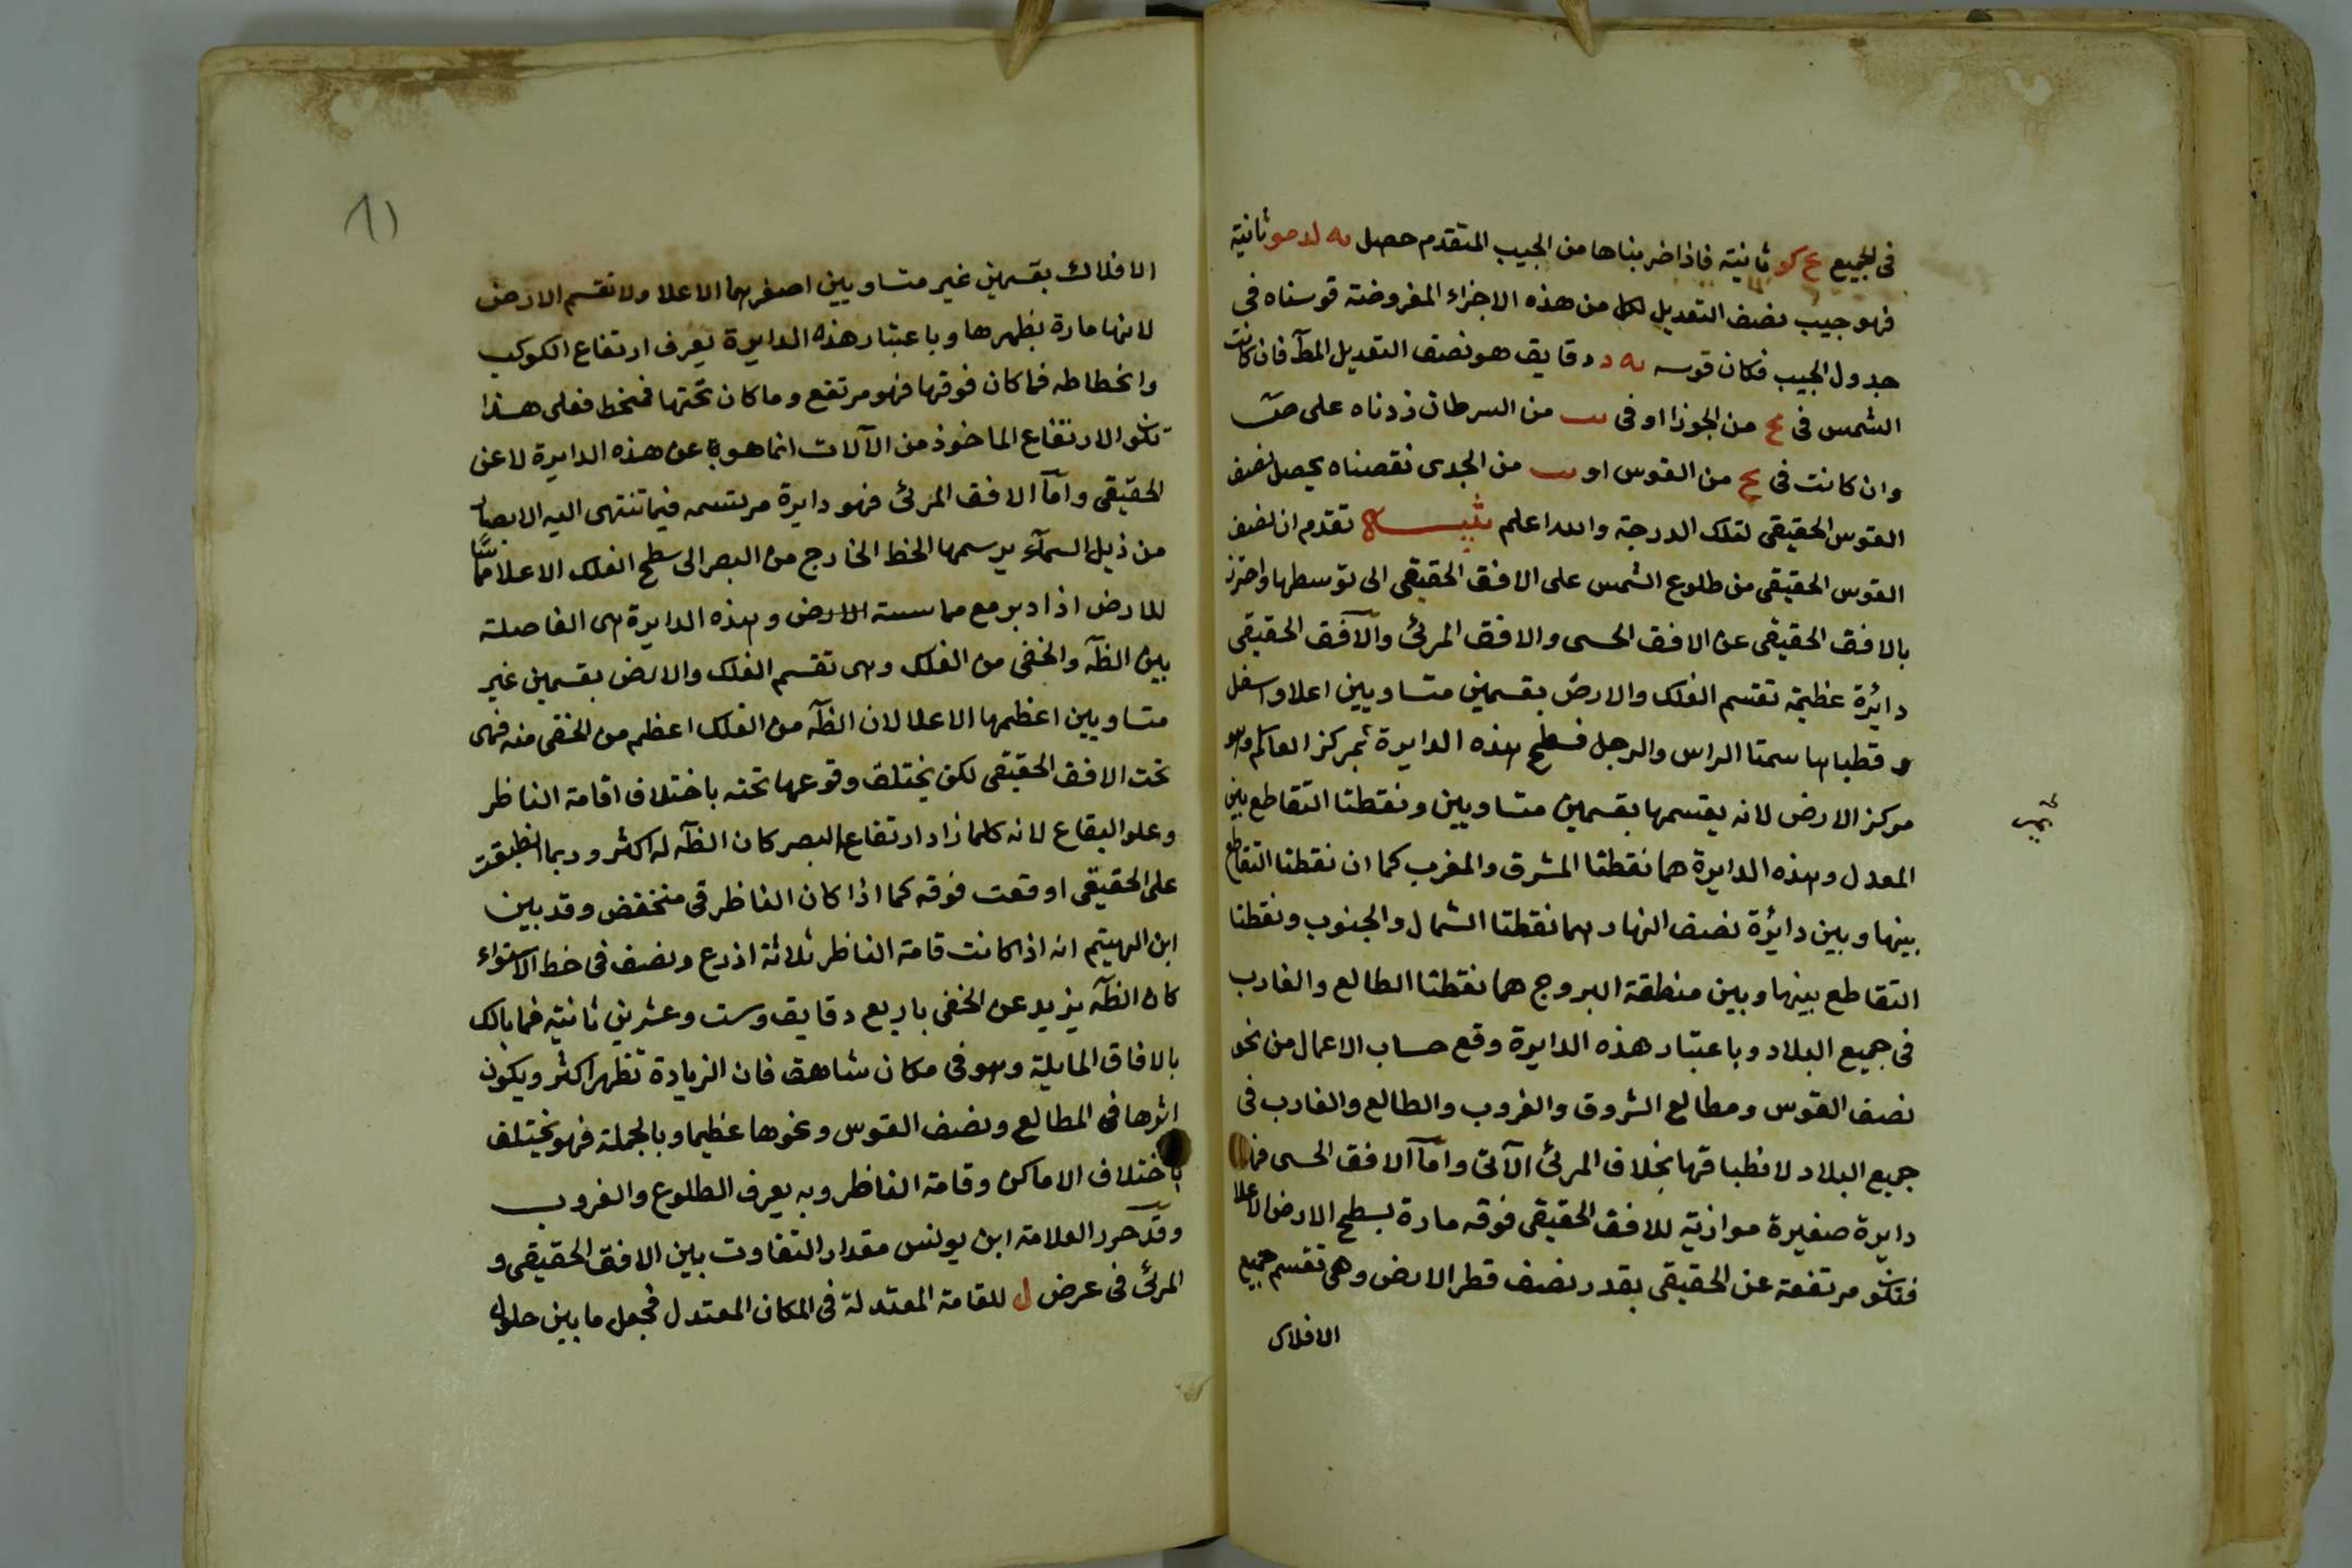 فى الجميع ع كو ثانيته فاذا ضربناها من الجيب المتقدم حصل ىه لد مو ثانية
فهو جيب نصف التعديل لكل من هذه الاجزاء المفروضته قوسناه فى
جدول الجيب فكان قوسه ىه د دقايق هو نصف التعديل المطآ فان كانت
الشمس فى ع من الجوزا او فى ىب من السرطان زدناه على ص
وان كانت فى ع من القوس او ىب من الجدى نقصناه يحصل نصف
القوس الحقيقى لتلك الدرجة والله اعلم تنبيـــه تقدم ان نصف
القوس الحقيقى من طلوع الشمس على الافق الحقيقى الى توسطها واحترز
بالافق الحقيقى عن الافق الحسى والافق المرئ والآفق الحقيقى
دائرة عظيمة تقسم الفلك والارض بقسمين متساويين اعلا واسفل
و قطباها سمتا الراس والرجل فسطح هذه الدايرة يمر بمركز العالم وهو
مركز الارض لانه يقسمها بقسمين متساويين ونقطتا التقاطع بين
المعدل وهذه الدايرة هما نقطتا المشرق والمغرب كما ان نقطتا التقاطع
بينها وبين دائرة نصف النهار هما نقطتا الشمال والجنوب ونقطتا
التقاطع بينها وبين منطقة البروج هما نقطتا الطالع والغارب
فى جميع البلاد وباعتبار هذه الدايرة وقع حساب الاعمال من نحو
نصف القوس ومطالع الشروق والغروب والطالع والغارب فى
جميع البلاد لانطباقها بخلاف المرئ الآتى وامآ الافق الحسى
دايرة صغيرة موازية للافق الحقيقى فوقه مارة بسطح الارض الاعلا
فتكون مرتفعة عن الحقيقى بقدر نصف قطر الارض وهى تقسم جميع
الافلاك
الافلاك بقسمين غير متساويين اصغرهما الاعلا ولا تقسم الارض
لانها مارة بظهرها وباعتبار هذه الدايرة يعرف ارتفاع الكوكب
وانخطاطه فما كان فوقها فهو مرتفع وما كان تحتها فمنخط فعلى هذا
تكون الارتفاع الماخوذ من الآلات انما هو عن هذه الدايرة لا عن
الحقيقى وامآ الافق المرئ فهو دايرة مرتسمه فيما تنتهى اليه الابصار
من ذيل السمآء يرسمها الخط الخارج من البصر الى سطح الفلك الاعلا مماسًا
للارض اذا دير مع مماسىته الارض وهذه الدايرة هى الفاصلته
بين الظآه والخفى من الفلك وهى تقسم الفلك والارض بقسمين غير
متساويين اعظمها الاعلا لان الظآه من الفلك اعظم من الخفى منه فهى
تحت الافق الحقيقى لكن يختلف وقوعها تحته باختلاف اقامة الناظر
وعلو البقاع لانه كلما زاد ارتفاع البصر كان الظآه له اكثر وربما انطبقت
على الحقيقى او وقعت فوقه كما اذا كان الناظر فى منخفض وقد بين
ابن الهيتم انه اذا كانت قامة الناظر ثلاثة اذرع ونصف فى خط الاستواء
كان الظآه يزيد عن الخفى باربع دقايق وست وعشرين ثانيته فما بالك
بالافاق المايلة وهو فى مكان شاهق فان الزيادة تظهر اكثر ويكون
اثرها فى المطالع ونصف القوس ونحوها عظيما وبالجملة فهو يختلف
باختلاف الاماكن وقامة الناظر وبه يعرف الطلوع والغروب
وقد حرر العلامة ابن يونس مقدار التفاوت بين الافق الحقيقى و
المرئ فى عرض ل للقامة المعتدلة فى المكان المعتدل فجعل ما بين حلول